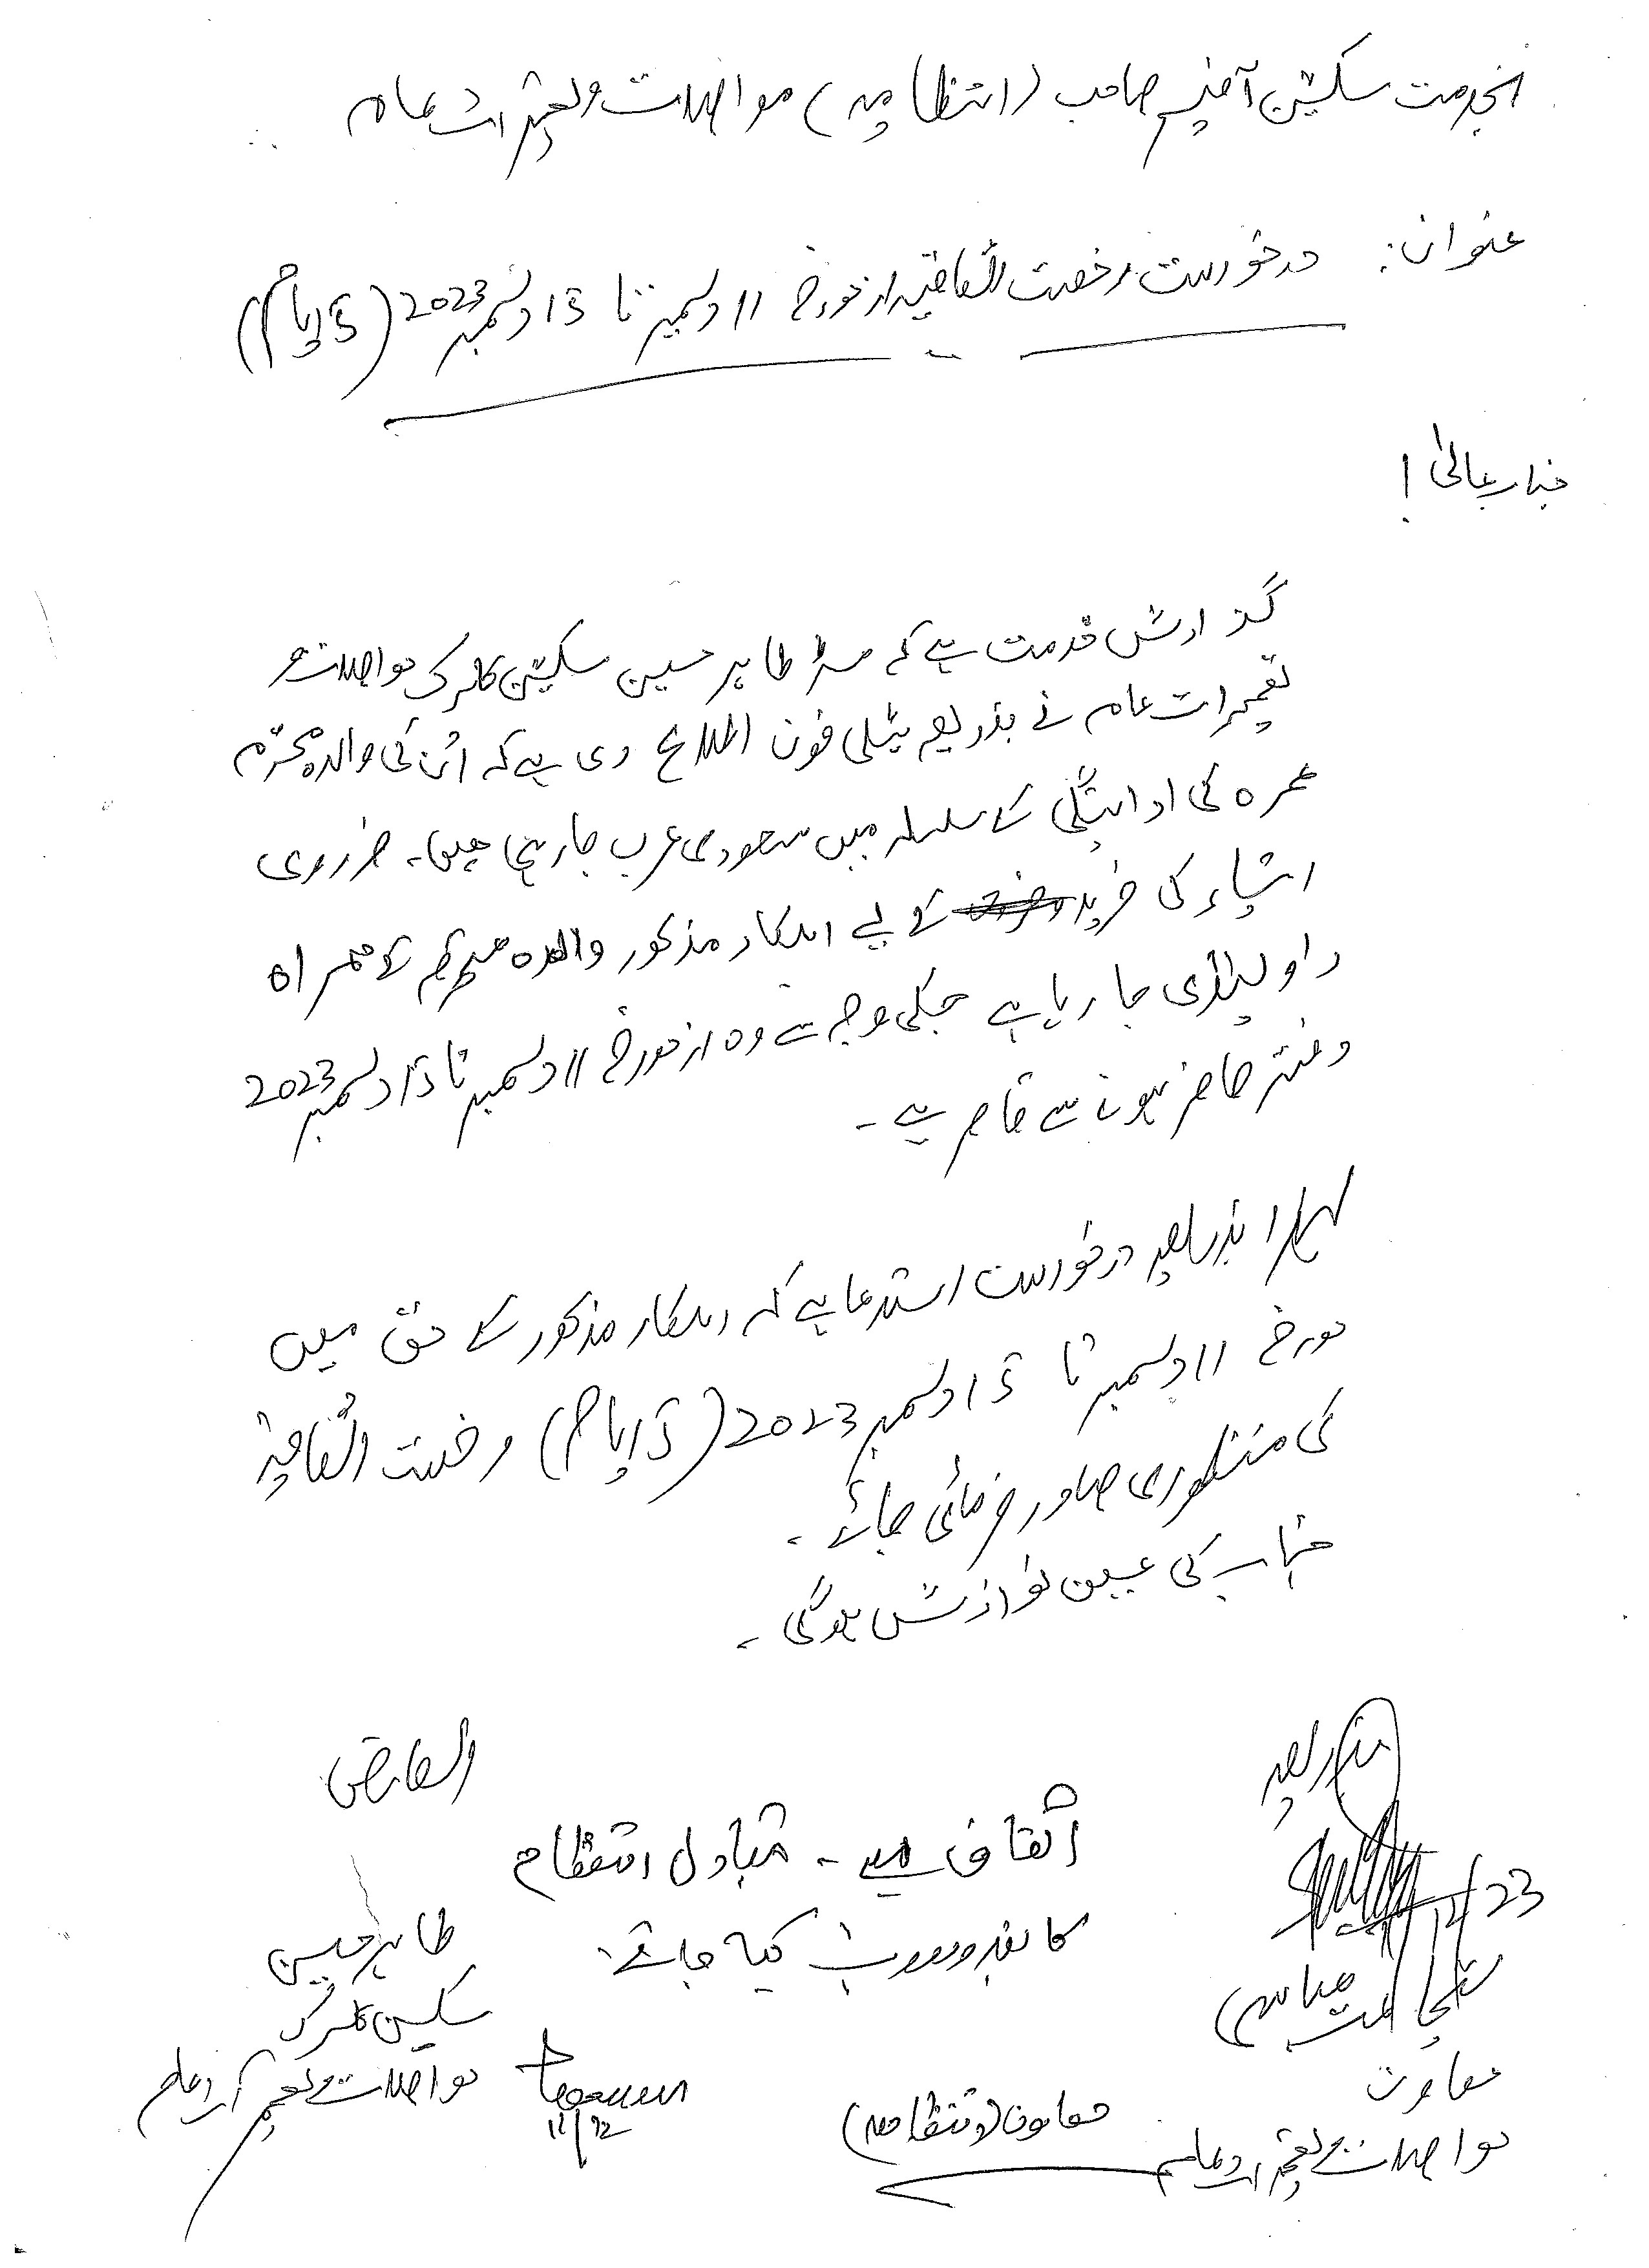 بخدمت سکیشن آفیسر صاحب (انتظامیہ) مواصلات وتعمیرات عامہ
عنوان: درخواست رخصت اتفاقیہ از مورخہ 11 دسمبر تا 15 دسمبر 2023 (5 ایام)
جناب عالیٰ!
گذارش خدمت ہے کہ مسٹر طاہر حسین سکیشن کلرک مواصلات و
تعمیرات عامہ نے بذریعہ ٹیلی فون اطلاع دی ہے کہ اُن کی والدہ محترمہ
عمرہ کی ادائیگی کے سلسلہ میں سعودی عرب جا رہی ہیں۔ ضروری
اشیاء کی خرید کے لیے اہلکار مذکور والدہ محترمہ کے ہمراہ
راولپنڈی جا رہا ہے جسکی وجہ سے وہ از مورخہ 11 دسمبر تا 15 دسمبر 2023
دفتر حاضر ہونے سے قاصر ہے۔
لہذا بذریعہ درخواست استدعا ہے کہ اہلکار مذکور کے حق میں
مورخہ 11 دسمبر تا 15 دسمبر 2023 (5 ایام) رخصت اتفاقیہ
کی منظوری صادر فرمائی جائے۔
جناب کی عین نوازش ہوگی۔
العارض
بذریعہ
اتفاق ہے۔ متبادل انتظام
کا بندوبست کیا جائے۔
طاہر حسین
سکیشن کلرک
مواصلات و تعمیرات عامہ
11/12
معاون (انتظامیہ)
/12/23
عباسی)
معاون
مواصلات و تعمیرات عامہ